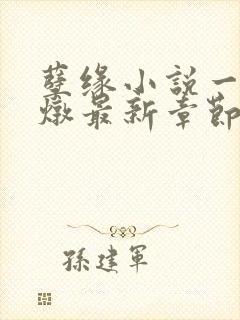 孽缘小说一
燉最新章節
孫建軍